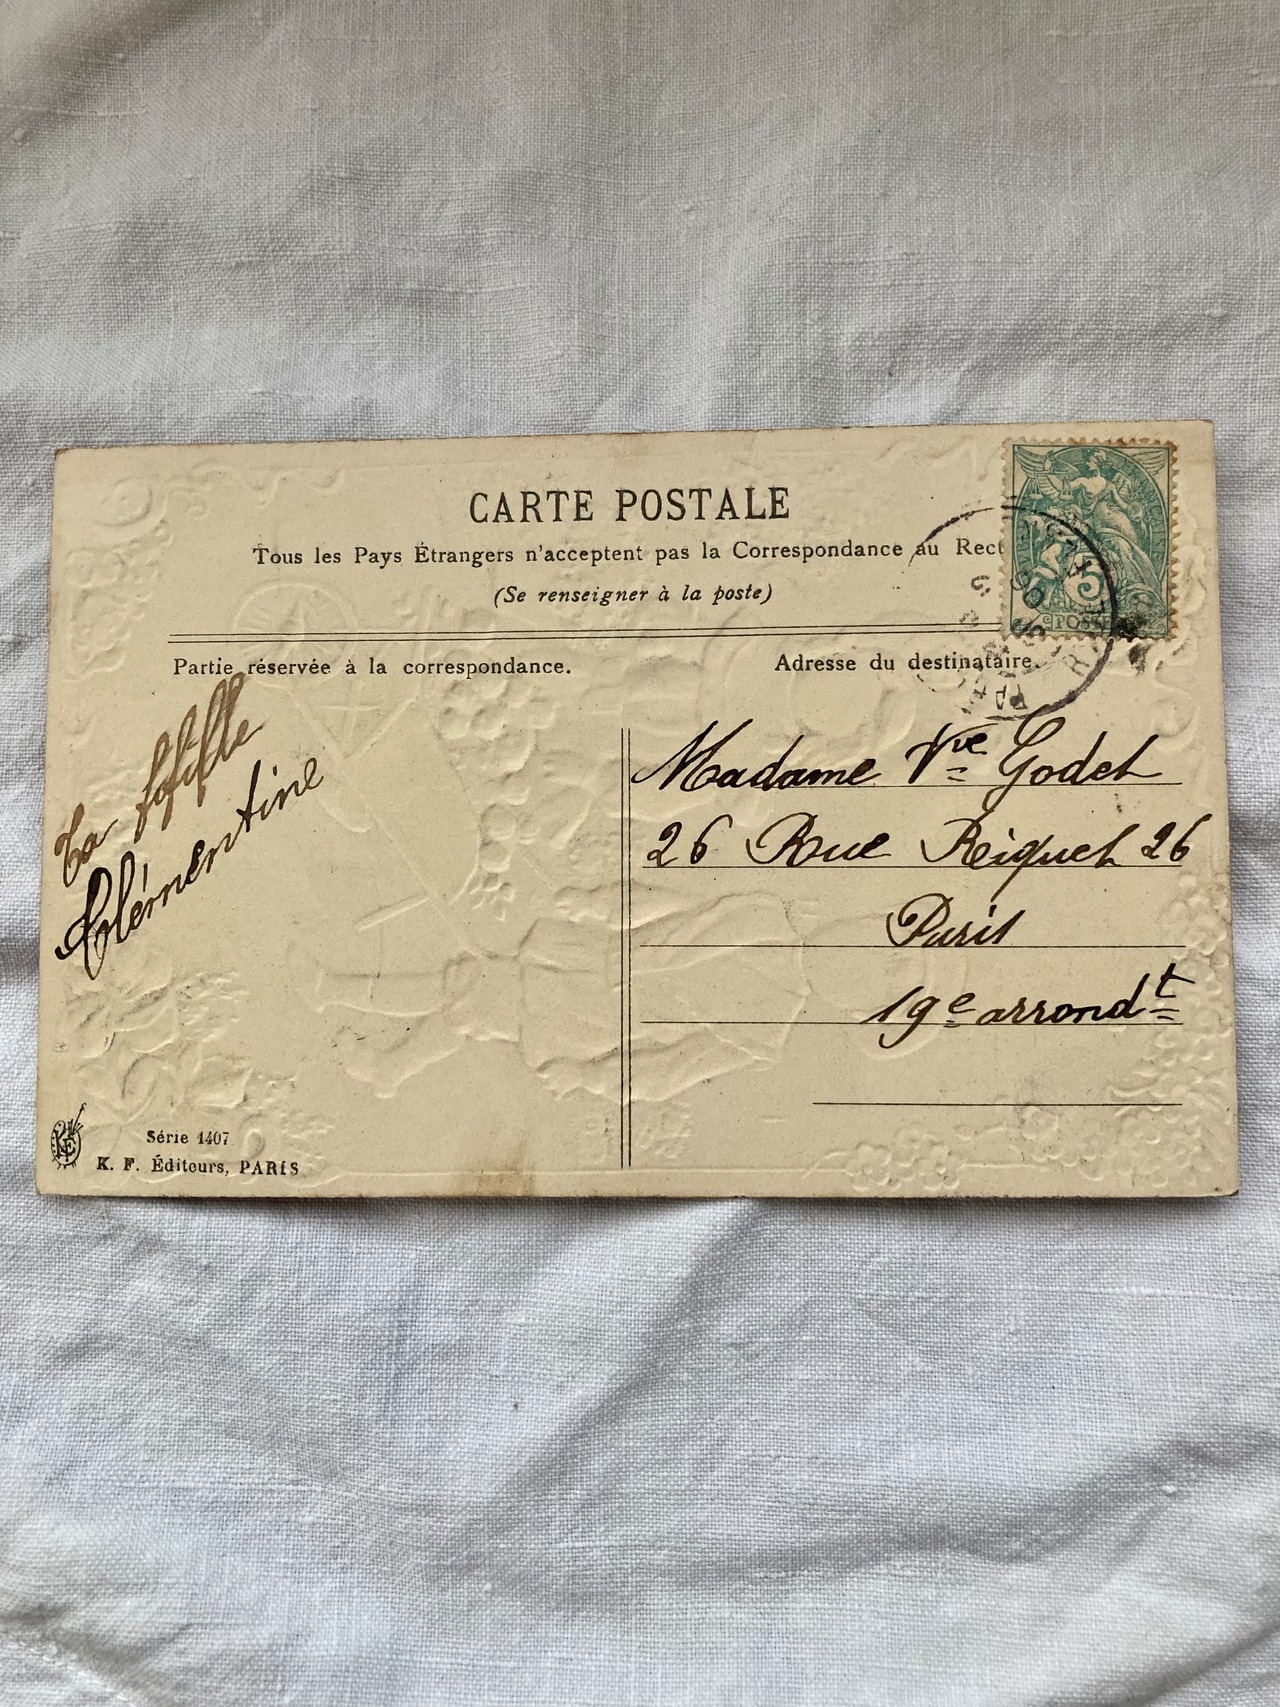 CARTE POSTALE
Tous les Pays Étrangers n'acceptent pas la Correspondance au Rect
(Se renseigner à la poste)
Partie réservée à la correspondance.
Adresse du destinataire.
Ta fifille
Clémentine
Madame Vve Godet
26 Rue Riquet 26
Paris
19e arrondt
5
POSTE
Série 1407
K. F. Éditeurs, PARIS